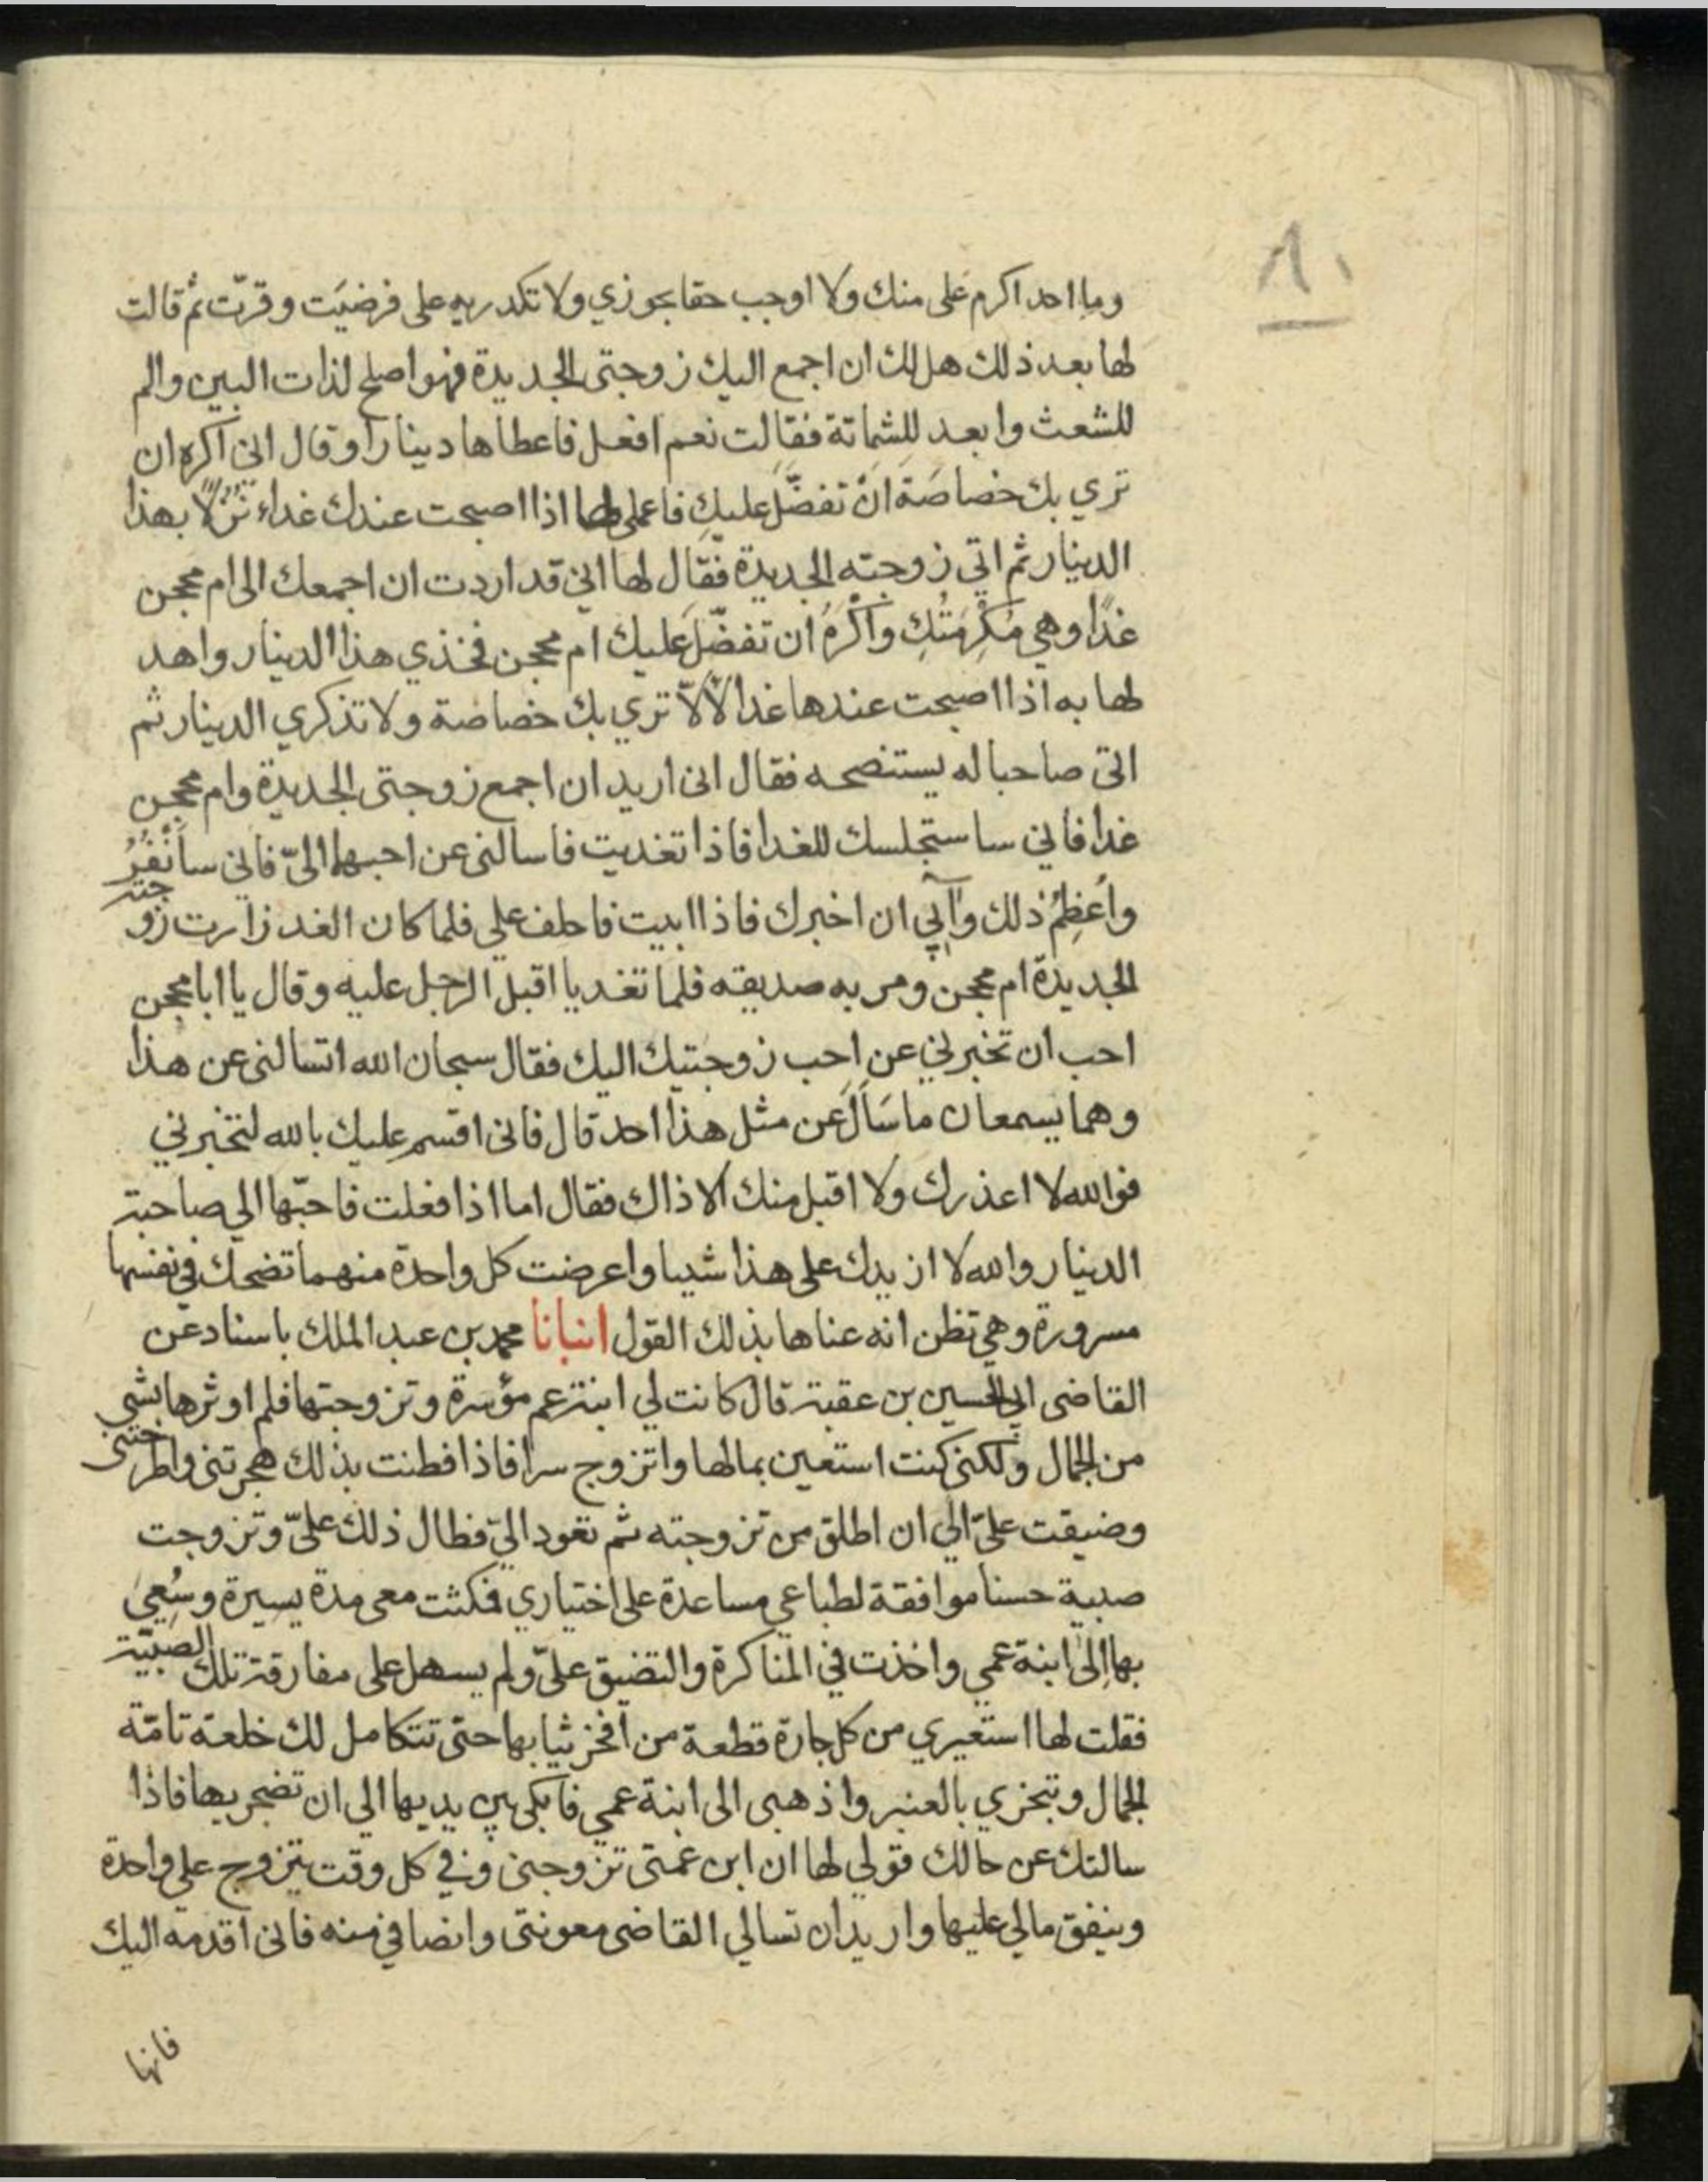 وما احد اكرم على منك ولا اوجب حقا بجوزي ولا تكدريه على فرضيت وقرت ثم قالت
لها بعد ذلك هل لك ان اجمع اليك زوجتى الجديدة فهو اصلح لذات البين والم
للشعث وابعد للشماتة فقالت نعم افعل فاعطاها دينارا وقال اني اكره ان
تري بك خصاصة ان تفضل عليك فاعملى لها اذا اصبحت عندك غداء نزلا بهذا
الدينار ثم اتي زوجته الجديدة فقال لها اني قد اردت ان اجمعك الى ام محجن
غدا وهي مكرمتك واكره ان تفضل عليك ام محجن فخذي هذا الدينار واهد
لها به اذا اصبحت عندها غدا لألا تري بك خصاصة ولا تذكري الدينار ثم
اتى صاحبا له يستنصحه فقال انى اريد ان اجمع زوجتى الجديدة وام محجن
غدا فاني ساستجلسك للغدا فاذا تغديت فاسالنى عن احبهما الىّ فاني سأنفر
واعظم ذلك وآبي ان اخبرك فاذا ابيت فاحلف علي فلما كان الغد زارت زوجته
الجديدة ام محجن ومر به صديقه فلما تغديا اقبل الرجل عليه وقال يا ابا محجن
احب ان تخبرني عن احب زوجتيك اليك فقال سبحان الله اتسالنى عن هذا
وهما يسمعان ما سأل عن مثل هذا احد قال فانى اقسم عليك بالله لتخبرني
فوالله لا اعذرك ولا اقبل منك الا ذاك فقال اما اذا فعلت فاحبّها الي صاحبة
الدينار والله لا ازيدك على هذا شيا واعرضت كل واحدة منهما تضحك في نفسها
مسرورة وهي تظن انه عناها بذلك القول انبانا محمد بن عبد الملك باسناد عن
القاضى ابي الحسين بن عقبة قال كانت لي ابنة عم موسرة وتزوجتها فلم اوثرها بشي
من الجمال ولكنى كنت استعين بمالها واتزوج سرا فاذا فطنت بذلك هجرتنى واطرحتني
وضيقت علىّ الي ان اطلق من تزوجته ثم تعود اليّ فطال ذلك علىّ وتزوجت
صبية حسنا موافقة لطباعي مساعدة على اختياري فمكثت معى مدة يسيرة وسُعِيَ
بها الى ابنة عمي واخذت في المناكرة والتضيق علىّ ولم يسهل على مفارقة تلك الصبيّة
فقلت لها استعيري من كل جارة قطعة من افخر ثيابها حتى تتكامل لك خلعة تامّة
الجمال وتبخري بالعنبر واذهبى الى ابنة عمي فابكى بين يديها الي ان تضجريها فاذا
سالتك عن حالك قولي لها ان ابن عمتى تزوجنى وفي كل وقت يتزوج علي واحدة
وينفق مالي عليها واريد ان تسالي القاضى معونتى وانصافي منه فانى اقدمه اليك
فانها